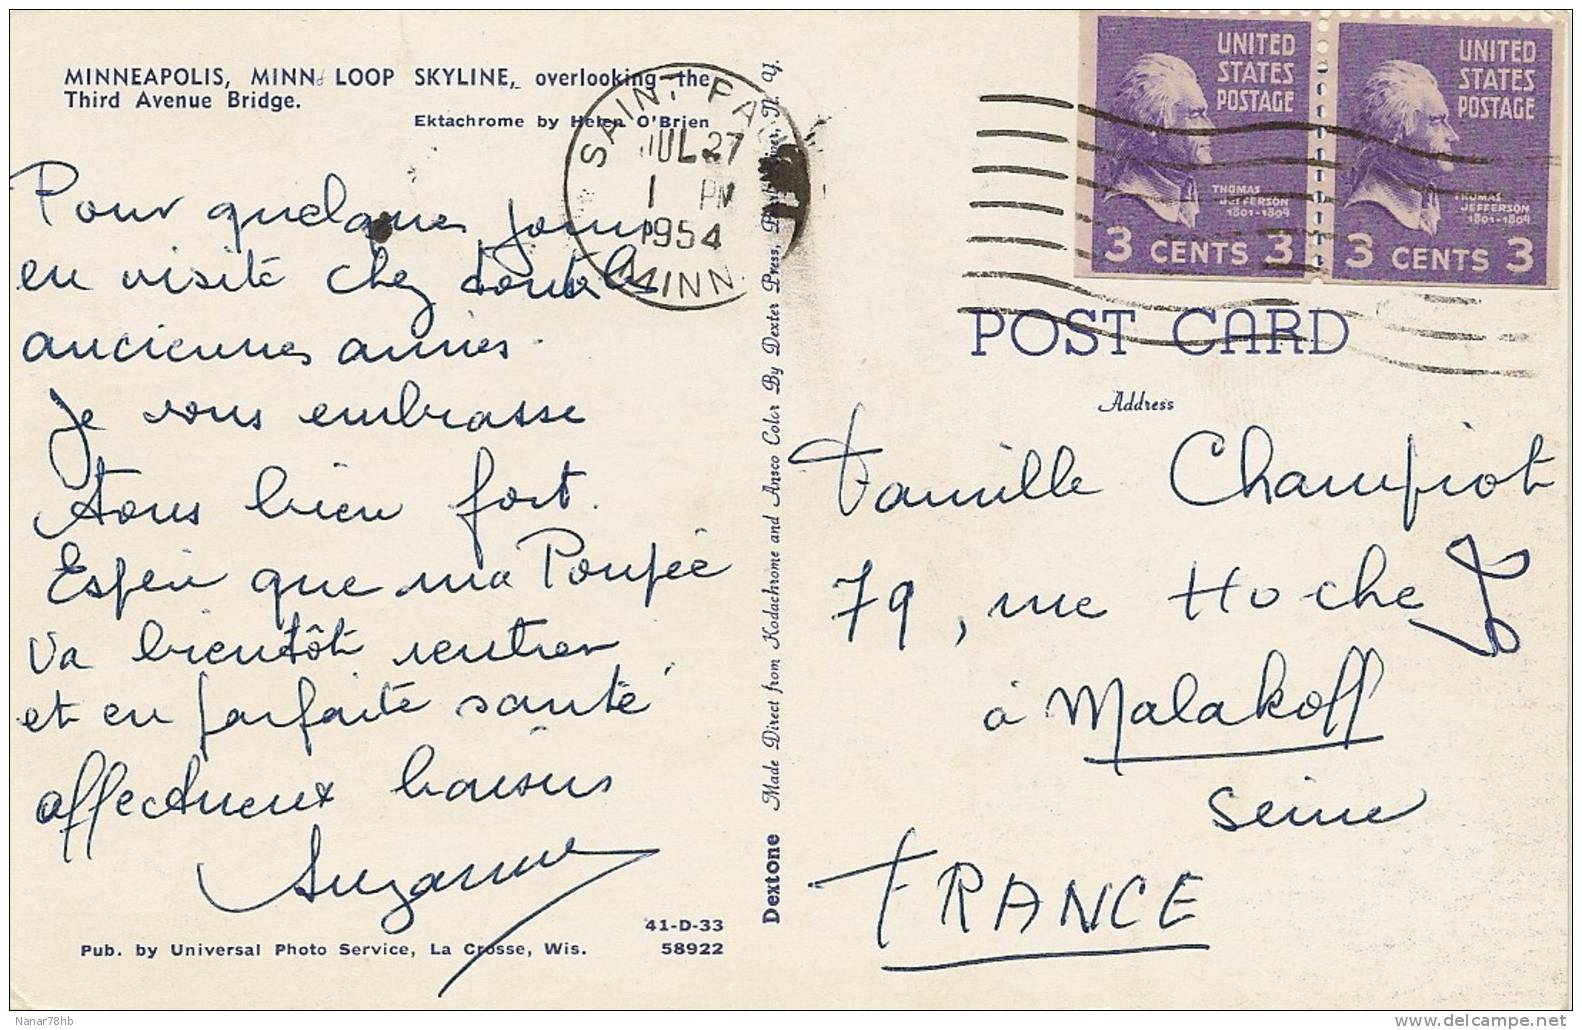 MINNEAPOLIS, MINN. LOOP SKYLINE, overlooking the
Third Avenue Bridge.
Ektachrome by Helen O'Brien
Pour quelques jours
en visité chez toutes les
anciennes amies.
Je vous embrasse
tous bien fort.
Espère que ma Poupée
va bientôt rentrer
et en parfaite santé
affectueux baisers
Suzanne
41-D-33
Pub. by Universal Photo Service, La Crosse, Wis. 58922
Dextone Made Direct from Kodachrome and Ansco Color By Dexter Press, N. Y.
SAINT PAUL
JUL 27
1 PM
1954
MINN.
UNITED
STATES
POSTAGE
THOMAS
JEFFERSON
1801-1809
3 CENTS 3
UNITED
STATES
POSTAGE
THOMAS
JEFFERSON
1801-1809
3 CENTS 3
POST CARD
Address
Famille Champiot
79, rue Hoche
à Malakoff
Seine
FRANCE
Nanar78hb
delcampe.net